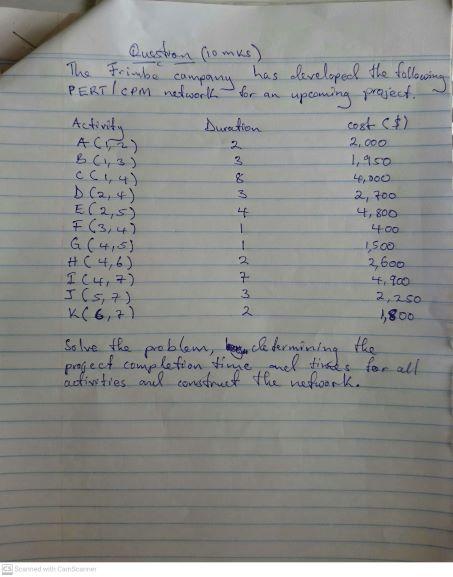 Question (10 mks)
The Frimbo company has developed the following
PERT/CPM network for an upcoming project.
Activity Duration cost ($)
A (1,2) 2 2,000
B (1,3) 3 1,950
C (1,4) 8 4,000
D (2,4) 3 2,700
E (2,5) 4 4,800
F (3,4) 1 400
G (4,5) 1 1,500
H (4,6) 2 2,600
I (4,7) 7 4,900
J (5,7) 3 2,250
K (6,7) 2 1,800
Solve the problem, determining the
project completion time and times for all
activities and construct the network.
CS Scanned with CamScanner